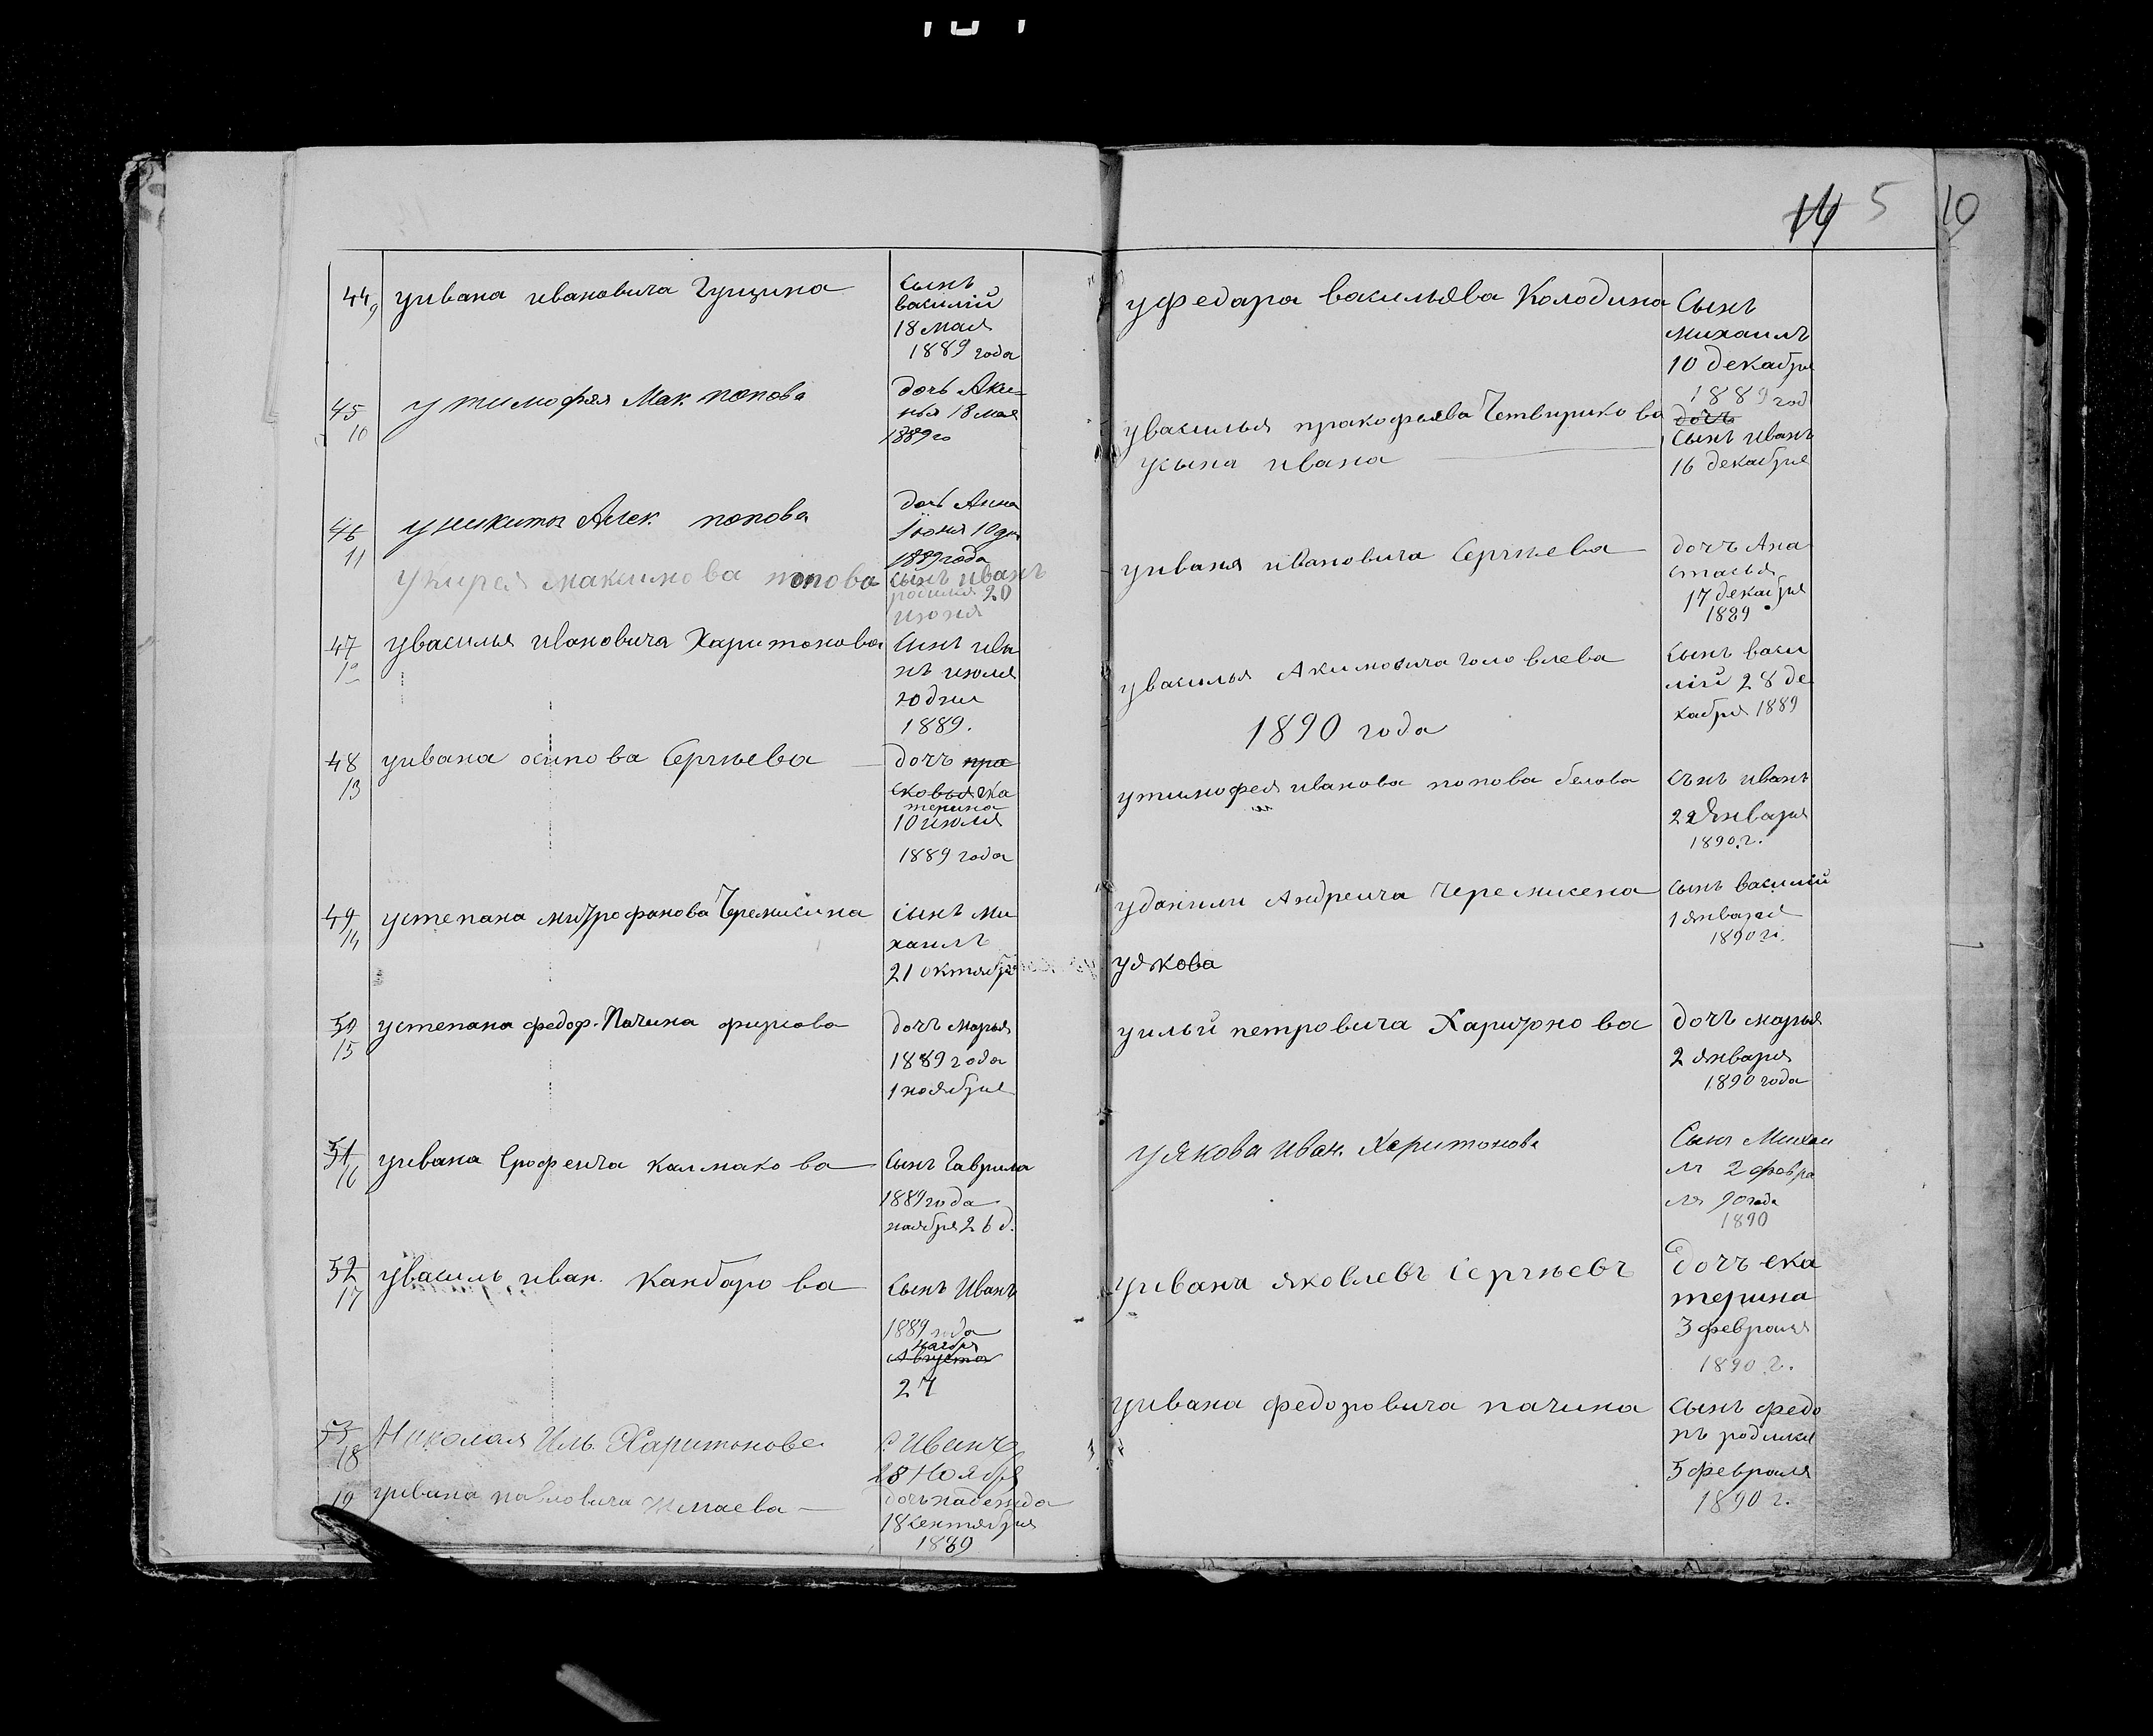 44 9 уивана ивановича Гущина сынъ
василій
18 мая
1889 года
45 10 у тимофея Мак. попова дочь Аки-
нья 18 мая
1889 го
46 11 у никиты Алек. попова дочь Анна
Іюня 10 дн
1889 года
укирея максимова попова сынъ иванъ
родился 20
июня
47 увасилья ивановича Харитонова сынъ ива
нъ июля
20 дня
1889.
48 13 уивана осипова Сергѣева дочъ пра
сковья ека
терина
10 июля
1889 года
49 14 устепана митрофанова Черемисина сынъ ми
хаилъ
21 октября
50 15 устепана федор. Пачина фирсова дочъ марья
1889 года
1 ноября
51 16 уивана Ерофеича калмакова сынъ Гаврила
1889 года
наября 26 д.
52 17 увасиль иван. Кандарова сынъ Иванъ
1889 года
наября
Августа
27
53 18 Николая Иль. Харитонова с. Иванъ
28 Ноября
19 уивана павловича дочь надежда
18 сентября
1889
14 5 10
уфедара васильява Колодина сынъ
михаилъ
10 декабря
1889 год
увасилья пракофьява Четвирикова дочъ
сынъ иванъ
усына ивана 16 декабря
уиваня ивановича Сергѣева дочъ Ана
стасья
17 декабря
1889
увасилья Акимовича головлева сынъ васи
лій 28 де
кабря 1889
1890 года
утимофея иванова попова белова сынъ иванъ
22 Января
1890 г.
уданили Андреича черемисена сынъ василий
1 января
1890 г.
уякова
уильи петровича Харитонова дочъ марья
2 января
1890 года
уякова Иван. Харитонова Сынъ Михаи
лъ 2 февра
ля 90 года
1890
уивана яковлевъ Сергѣевъ дочъ ека
терина
3 февраля
1890 г.
уивана федоровича пачина сынъ федо
ръ родился
5 февраля
1890 г.